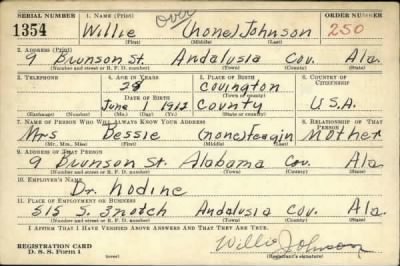 SERIAL NUMBER 1. NAME (Print) over ORDER NUMBER
1354 Willie (none) Johnson 250
(First) (Middle) (Last)
2. ADDRESS (Print)
9 Brunson St. Andalusia Cov. Ala.
(Number and street or R. F. D. number) (Town) (County) (State)
3. TELEPHONE 4. AGE IN YEARS 5. PLACE OF BIRTH 6. COUNTRY OF CITIZENSHIP
28 Covington
DATE OF BIRTH (Town or county)
June 1 1912 County U.S.A.
(Exchange) (Number) (Mo.) (Day) (Yr.) (State or country)
7. NAME OF PERSON WHO WILL ALWAYS KNOW YOUR ADDRESS 8. RELATIONSHIP OF THAT PERSON
Mrs Bessie (none) Feagin Mother
(Mr., Mrs., Miss) (First) (Middle) (Last)
9. ADDRESS OF THAT PERSON
9 Brunson St. Alabama Cov. Ala
(Number and street or R. F. D. number) (Town) (County) (State)
10. EMPLOYER'S NAME
Dr. Nodine
11. PLACE OF EMPLOYMENT OR BUSINESS
515 S. 3 notch Andalusia Cov. Ala.
(Number and street or R. F. D. number) (Town) (County) (State)
I AFFIRM THAT I HAVE VERIFIED ABOVE ANSWERS AND THAT THEY ARE TRUE.
REGISTRATION CARD
D. S. S. Form 1 Willie Johnson
(Registrant's signature)